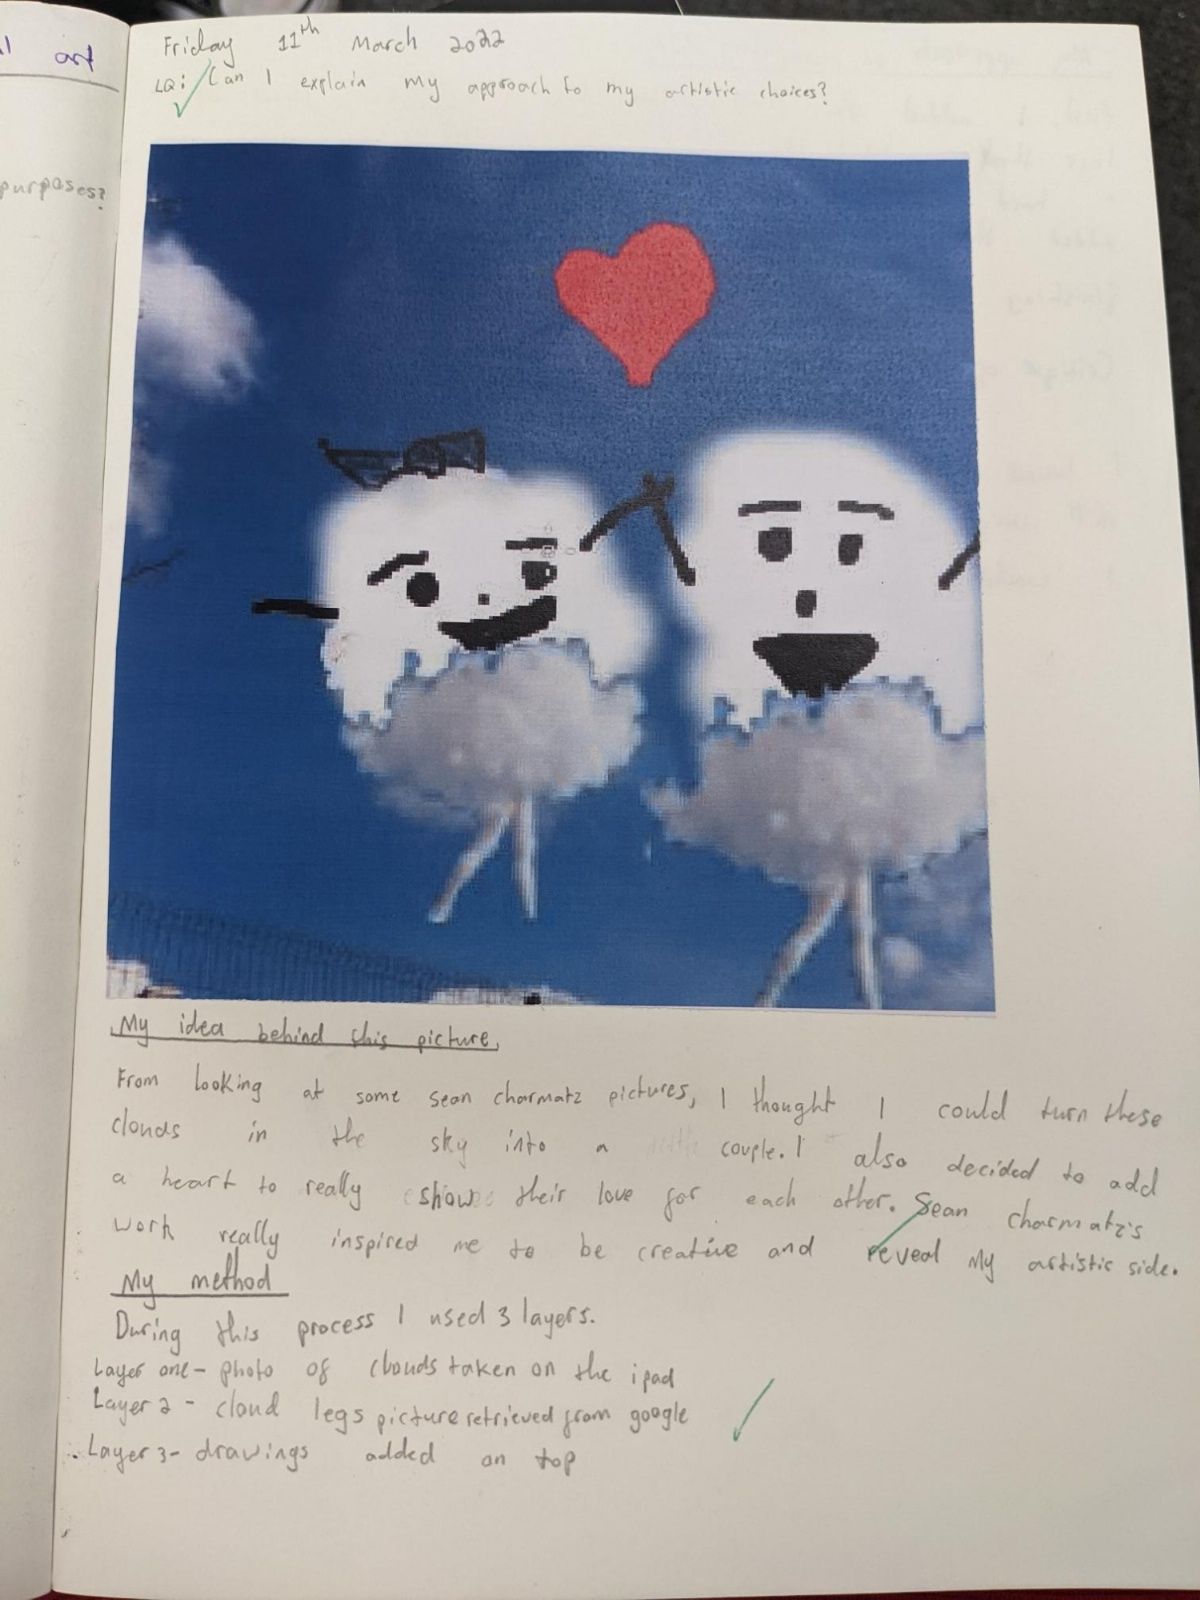 art
purposes?
Friday 11th March 2022
LQ: Can I explain my approach to my artistic choices?
My idea behind this picture.
From looking at some sean charmatz pictures, I thought I could turn these
clouds in the sky into a couple. I also decided to add
a heart to really show their love for each other. Sean charmatz's
work really inspired me to be creative and reveal my artistic side.
My method
During this process I used 3 layers.
Layer one - photo of clouds taken on the ipad
Layer 2 - cloud legs picture retrieved from google
Layer 3 - drawings added on top